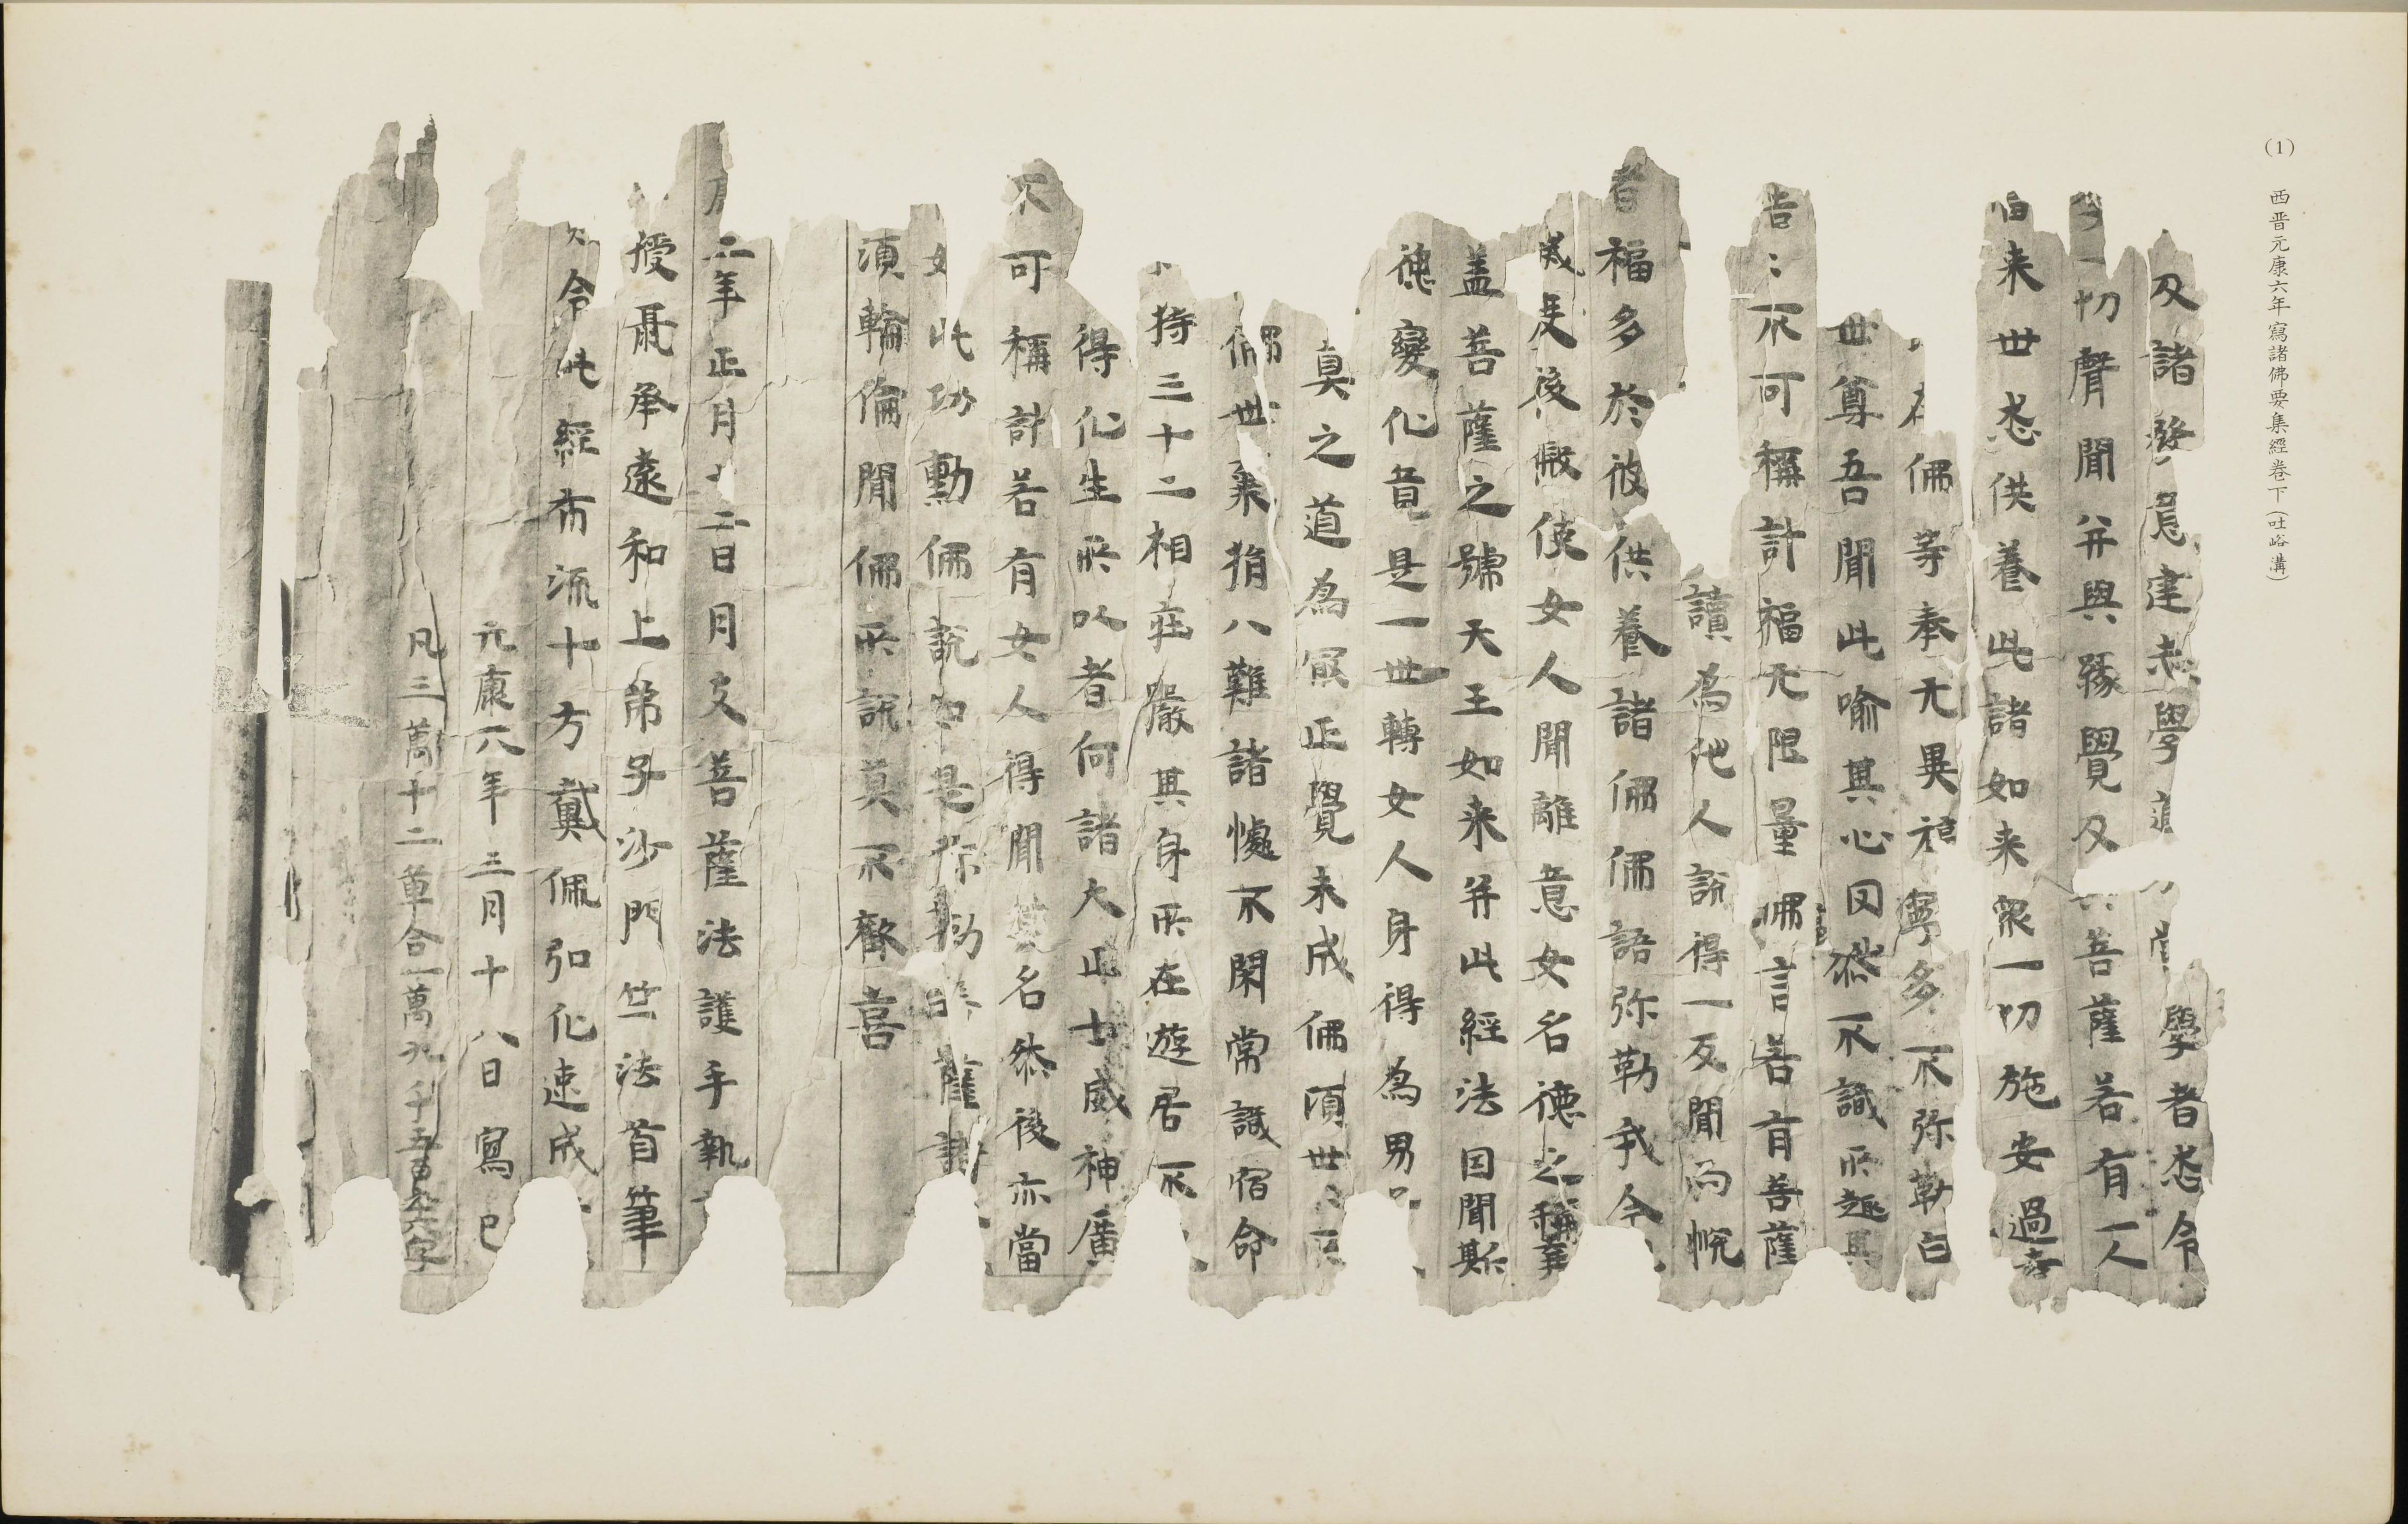 (1) 西晋元康六年寫諸佛要集經卷下(吐峪溝)
及諸發意建志學道 學者悉令
一切聲聞并與緣覺及 菩薩若有一人
来世悉供養此諸如来衆一切施安過
佛等奉无異福寧多不弥勒白
世尊吾聞此喻其心因然不識所趣其
告:不可稱計福无限量佛言若有菩薩
讀為他人說得一反聞而怳
者福多於彼供養諸佛佛語弥勒我今
滅度後儌使女人聞離意女名德之稱
盖菩薩之號天王如来并此經法因聞斯
德變化竟是一世轉女人身得為男
真之道為冣正覺未成佛湏世
佛世棄捐八難諸懅不閑常識宿命
持三十二相莊嚴其身所在遊居不
得化生所以者何諸大正士威神廣
不可稱計若有女人得聞 名然後亦當
如此功勳佛說如是弥勒 薩諸
湏輪倫聞佛所說莫不歡喜
二年正月十二日月支菩薩法護手執
授聶承遠和上弟子沙門竺法首筆
令此經布流十方戴佩弘化速成
元康六年三月十八日寫已
凡三萬十二章合一萬九千五百九十六字